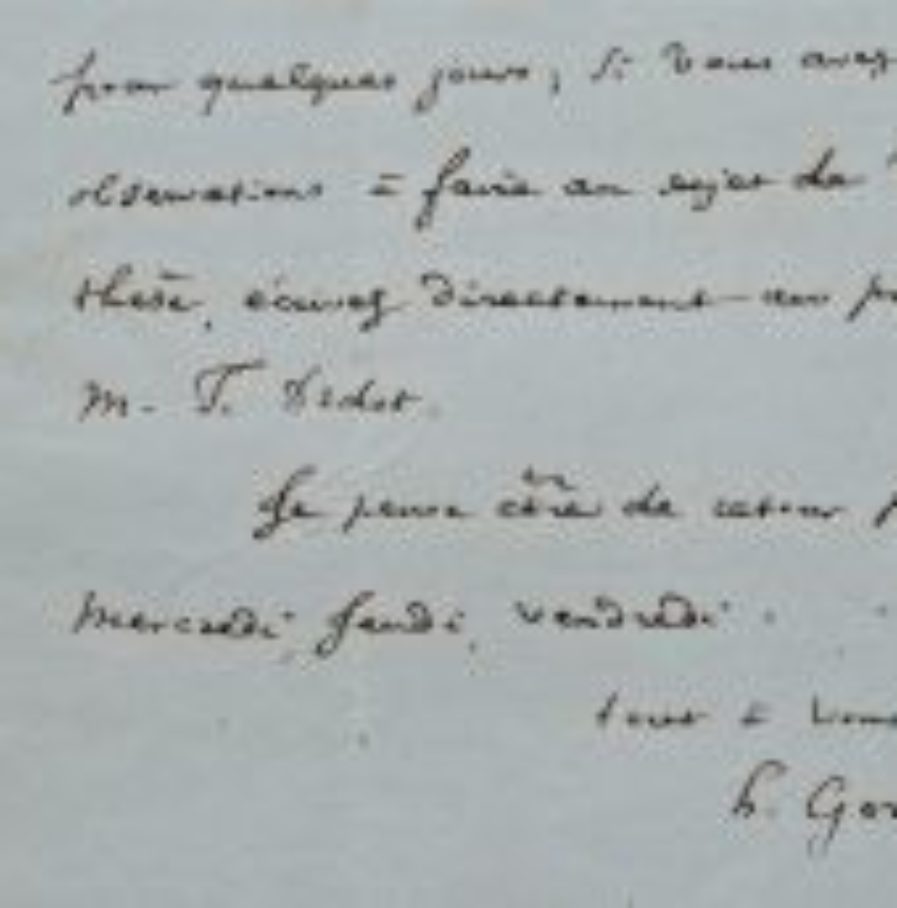 pour quelques jours, si vous avez
observations à faire au sujet de
thèse, écrivez directement au
M. F. Didot.
Je pense être de retour
mercredi, jeudi, vendredi.
tout à vous
h. Gor